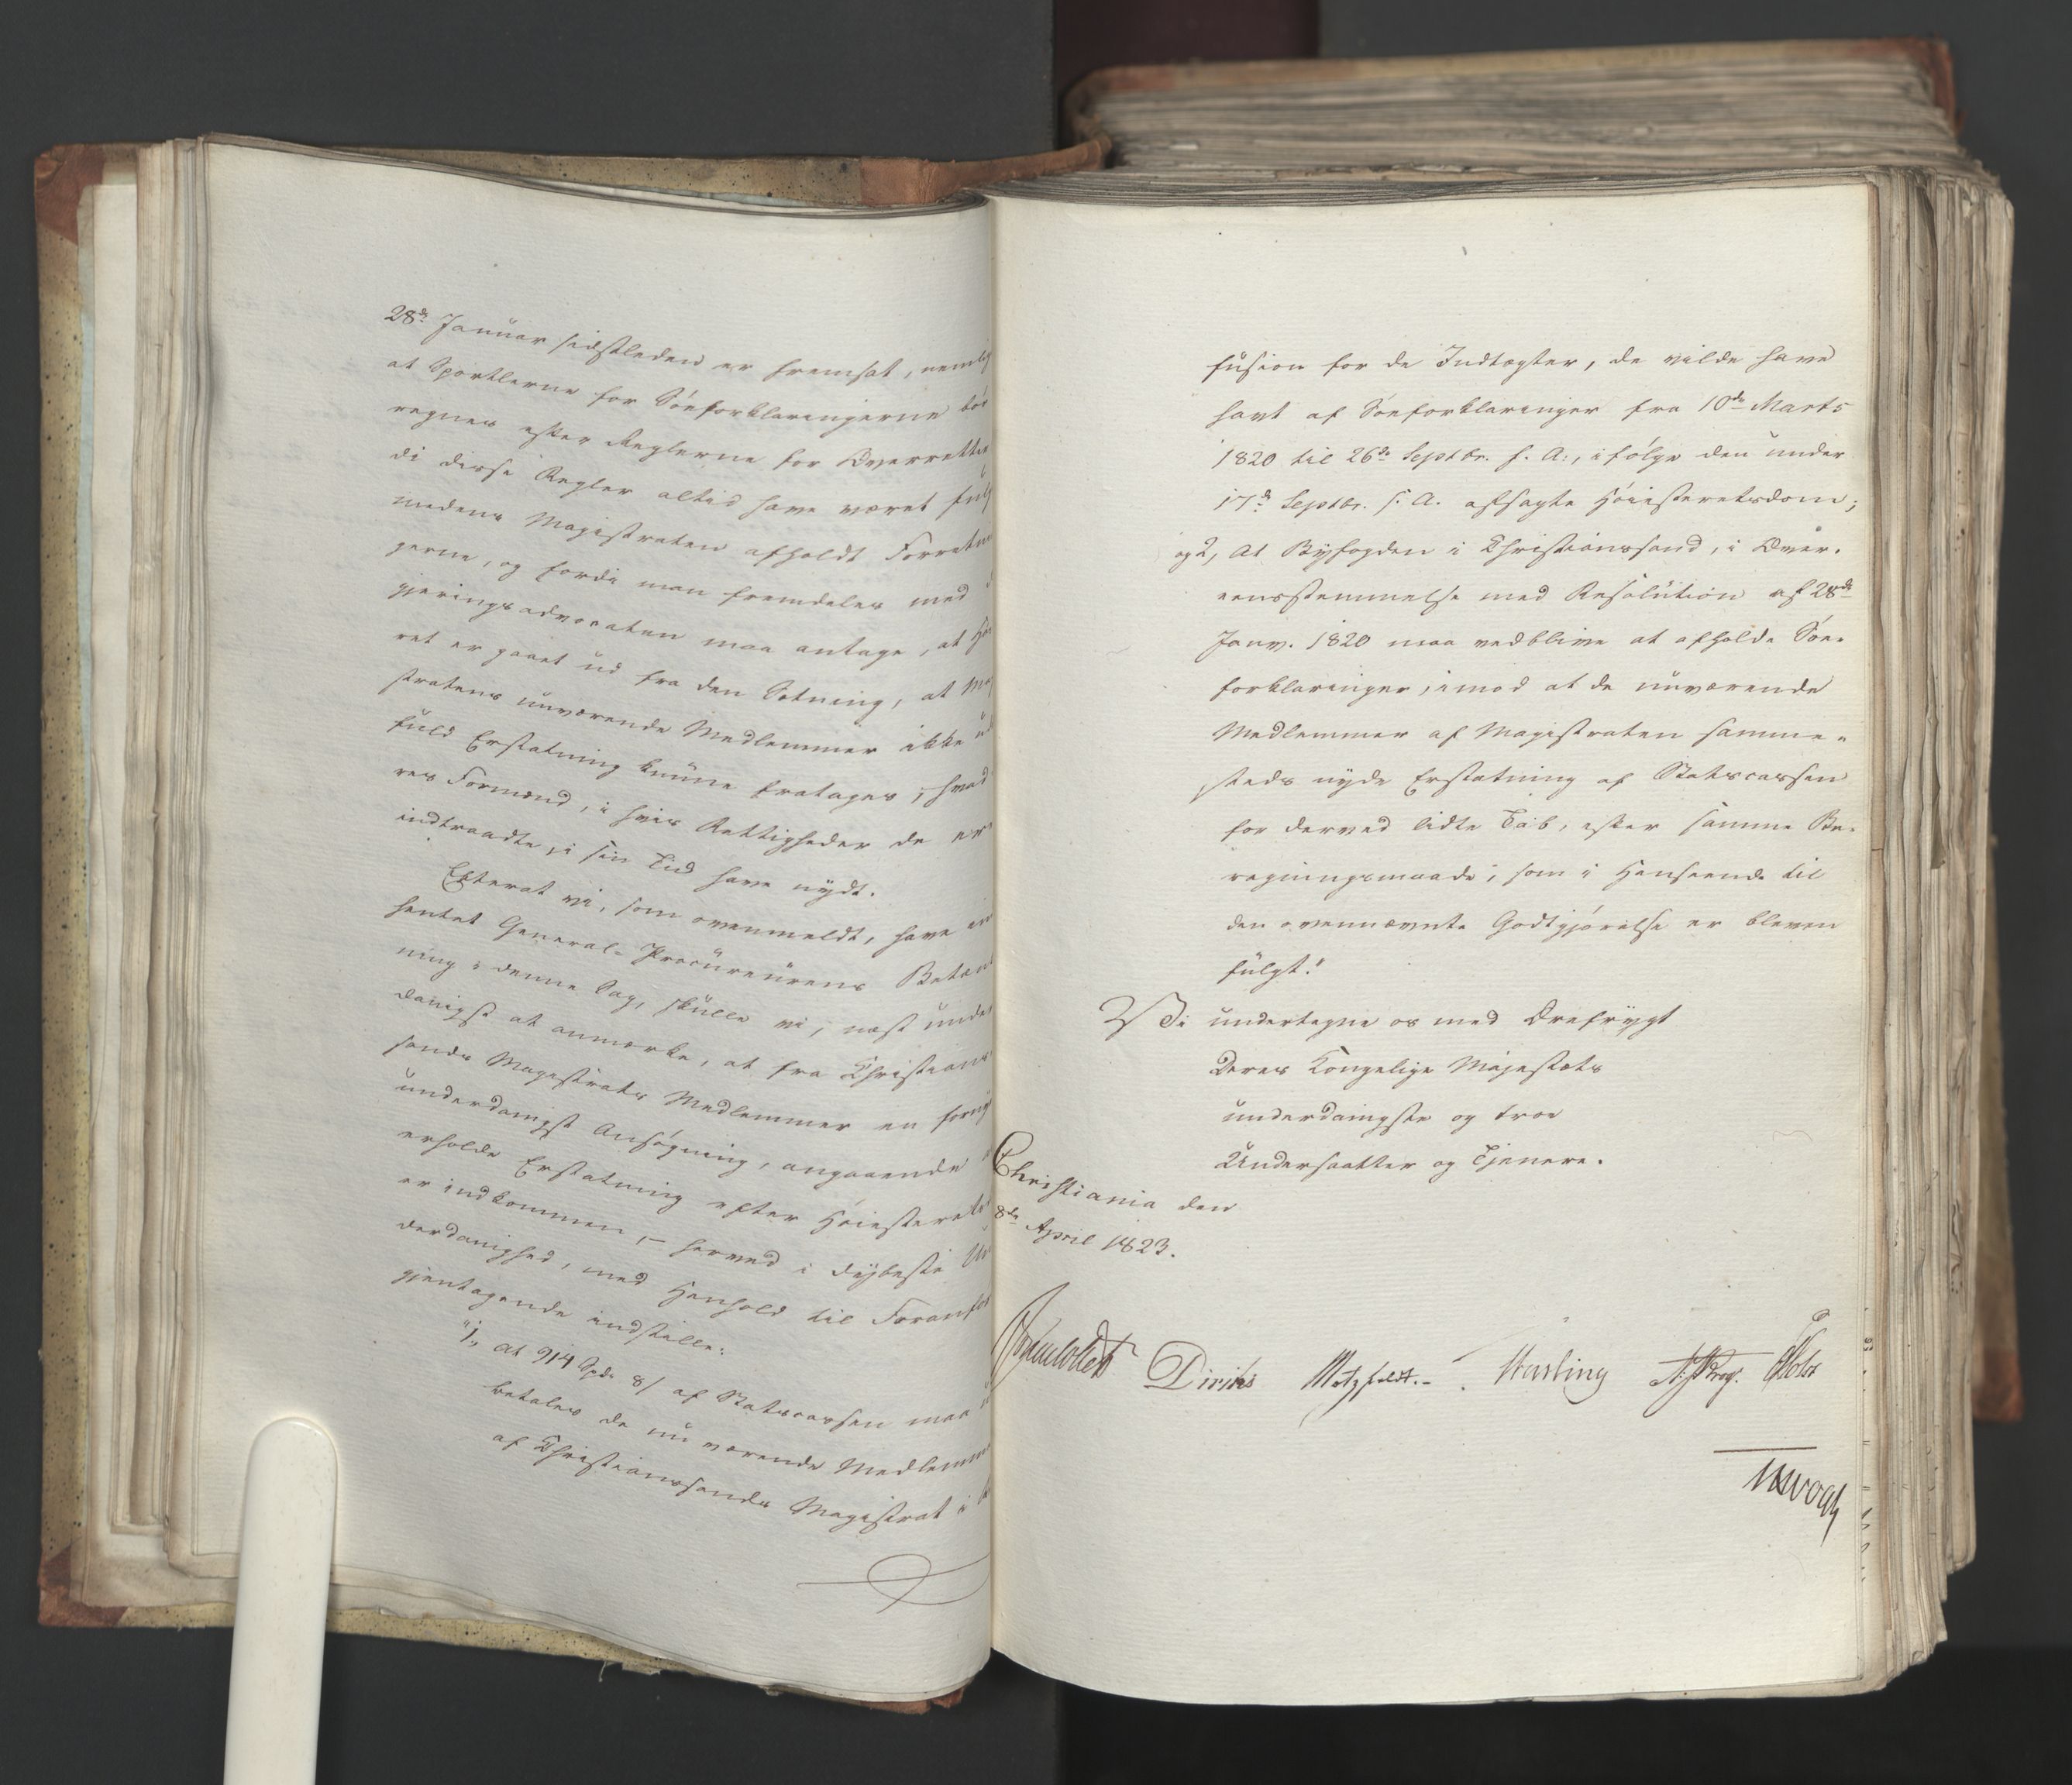 28de Januar sidstleden er fremsat, nemlig
at Sportlerne for Söeforklaringerne bör
regnes efter Reglerne for Overretten
di disse Regler altid have været fulg
medens Magistraten afholdt Forretn
gerne, og fordi man fremdeles med
gjeringsadvocaten maa antage, at Hö
ret er gaaet ud fra den Sætning, at Ma
stratens nuværende Medlemmer ikke
fuld Erstatning kunne fratages, hvad
res Formænd, i hvis Rettigheder de er
indtraadte, i sin Tid have nydt.
Efterat vi, som ovenmeldt, have in
hentet General-Procureurens Betænk
ning i denne Sag, skulle vi, næst under
danigst at anmærke, at fra Christian
sands Magistrats Medlemmer en forny
underdanigst Ansøgning, angaaende
erholde Erstatning efter Höiesterets
er indkommen, - herved i dybeste Un
derdanighed, med Henhold til Foranför
gjentagende indstille:
"1, at 914 Spd. 8 / af Statscassen maa
betales de nu værende Medlemm
af Christianssands Magistrat i
fusion for de Indtægter, de vilde have
havt af Söeforklaringer fra 10de Marts
1820 til 26de Septbr. s. A., i fölge den under
17de Septbr. s. A. afsagte Höiesteretsdom;
og 2, At Byfogden i Christianssand, i Over-
eensstemmelse med Resolution af 28de
Janv. 1820 maa vedblive at afholde Söe-
forklaringer, imod at de nuværende
Medlemmer af Magistraten samme-
steds nyde Erstatning af Statscassen
for derved lidte Tab, efter samme Be-
regningsmaade, som i Henseende til
den ovennævnte Godtgjörelse er bleven
fulgt."
Vi undertegne os med Ærefrygt
Deres Kongelige Majestæts
underdanigste og troe
Undersaatter og Tjenere.
Christiania den
8de April 1823.
Diriks Motzfeldt. Krog. Holst
Vogt